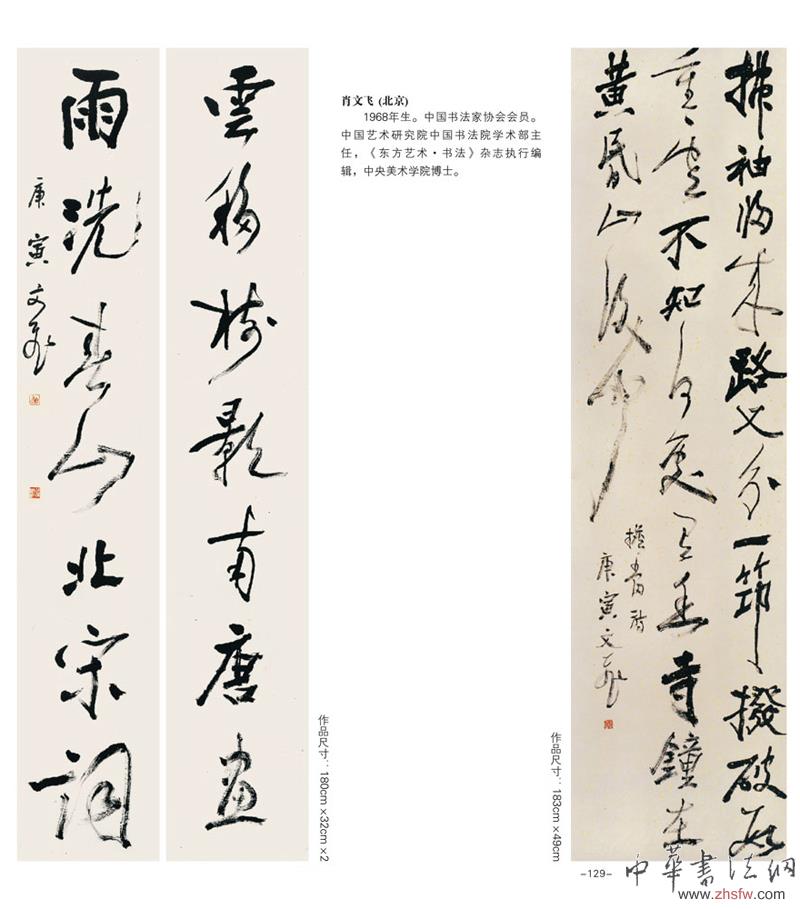 雲移樹影南唐畫
雨洗春山北宋詞
庚寅 文飛
肖文飞 (北京)
1968年生。中国书法家协会会员。
中国艺术研究院中国书法院学术部主
任，《东方艺术·书法》杂志执行编
辑，中央美术学院博士。
作品尺寸：180cm×32cm×2
拂袖归来路又分一筇撥破
重雲不知何處寺鐘在
黃昏山後聞
擔當詩
庚寅文飛
作品尺寸：183cm×49cm
-129-
中華書法網
www.zhsfw.com